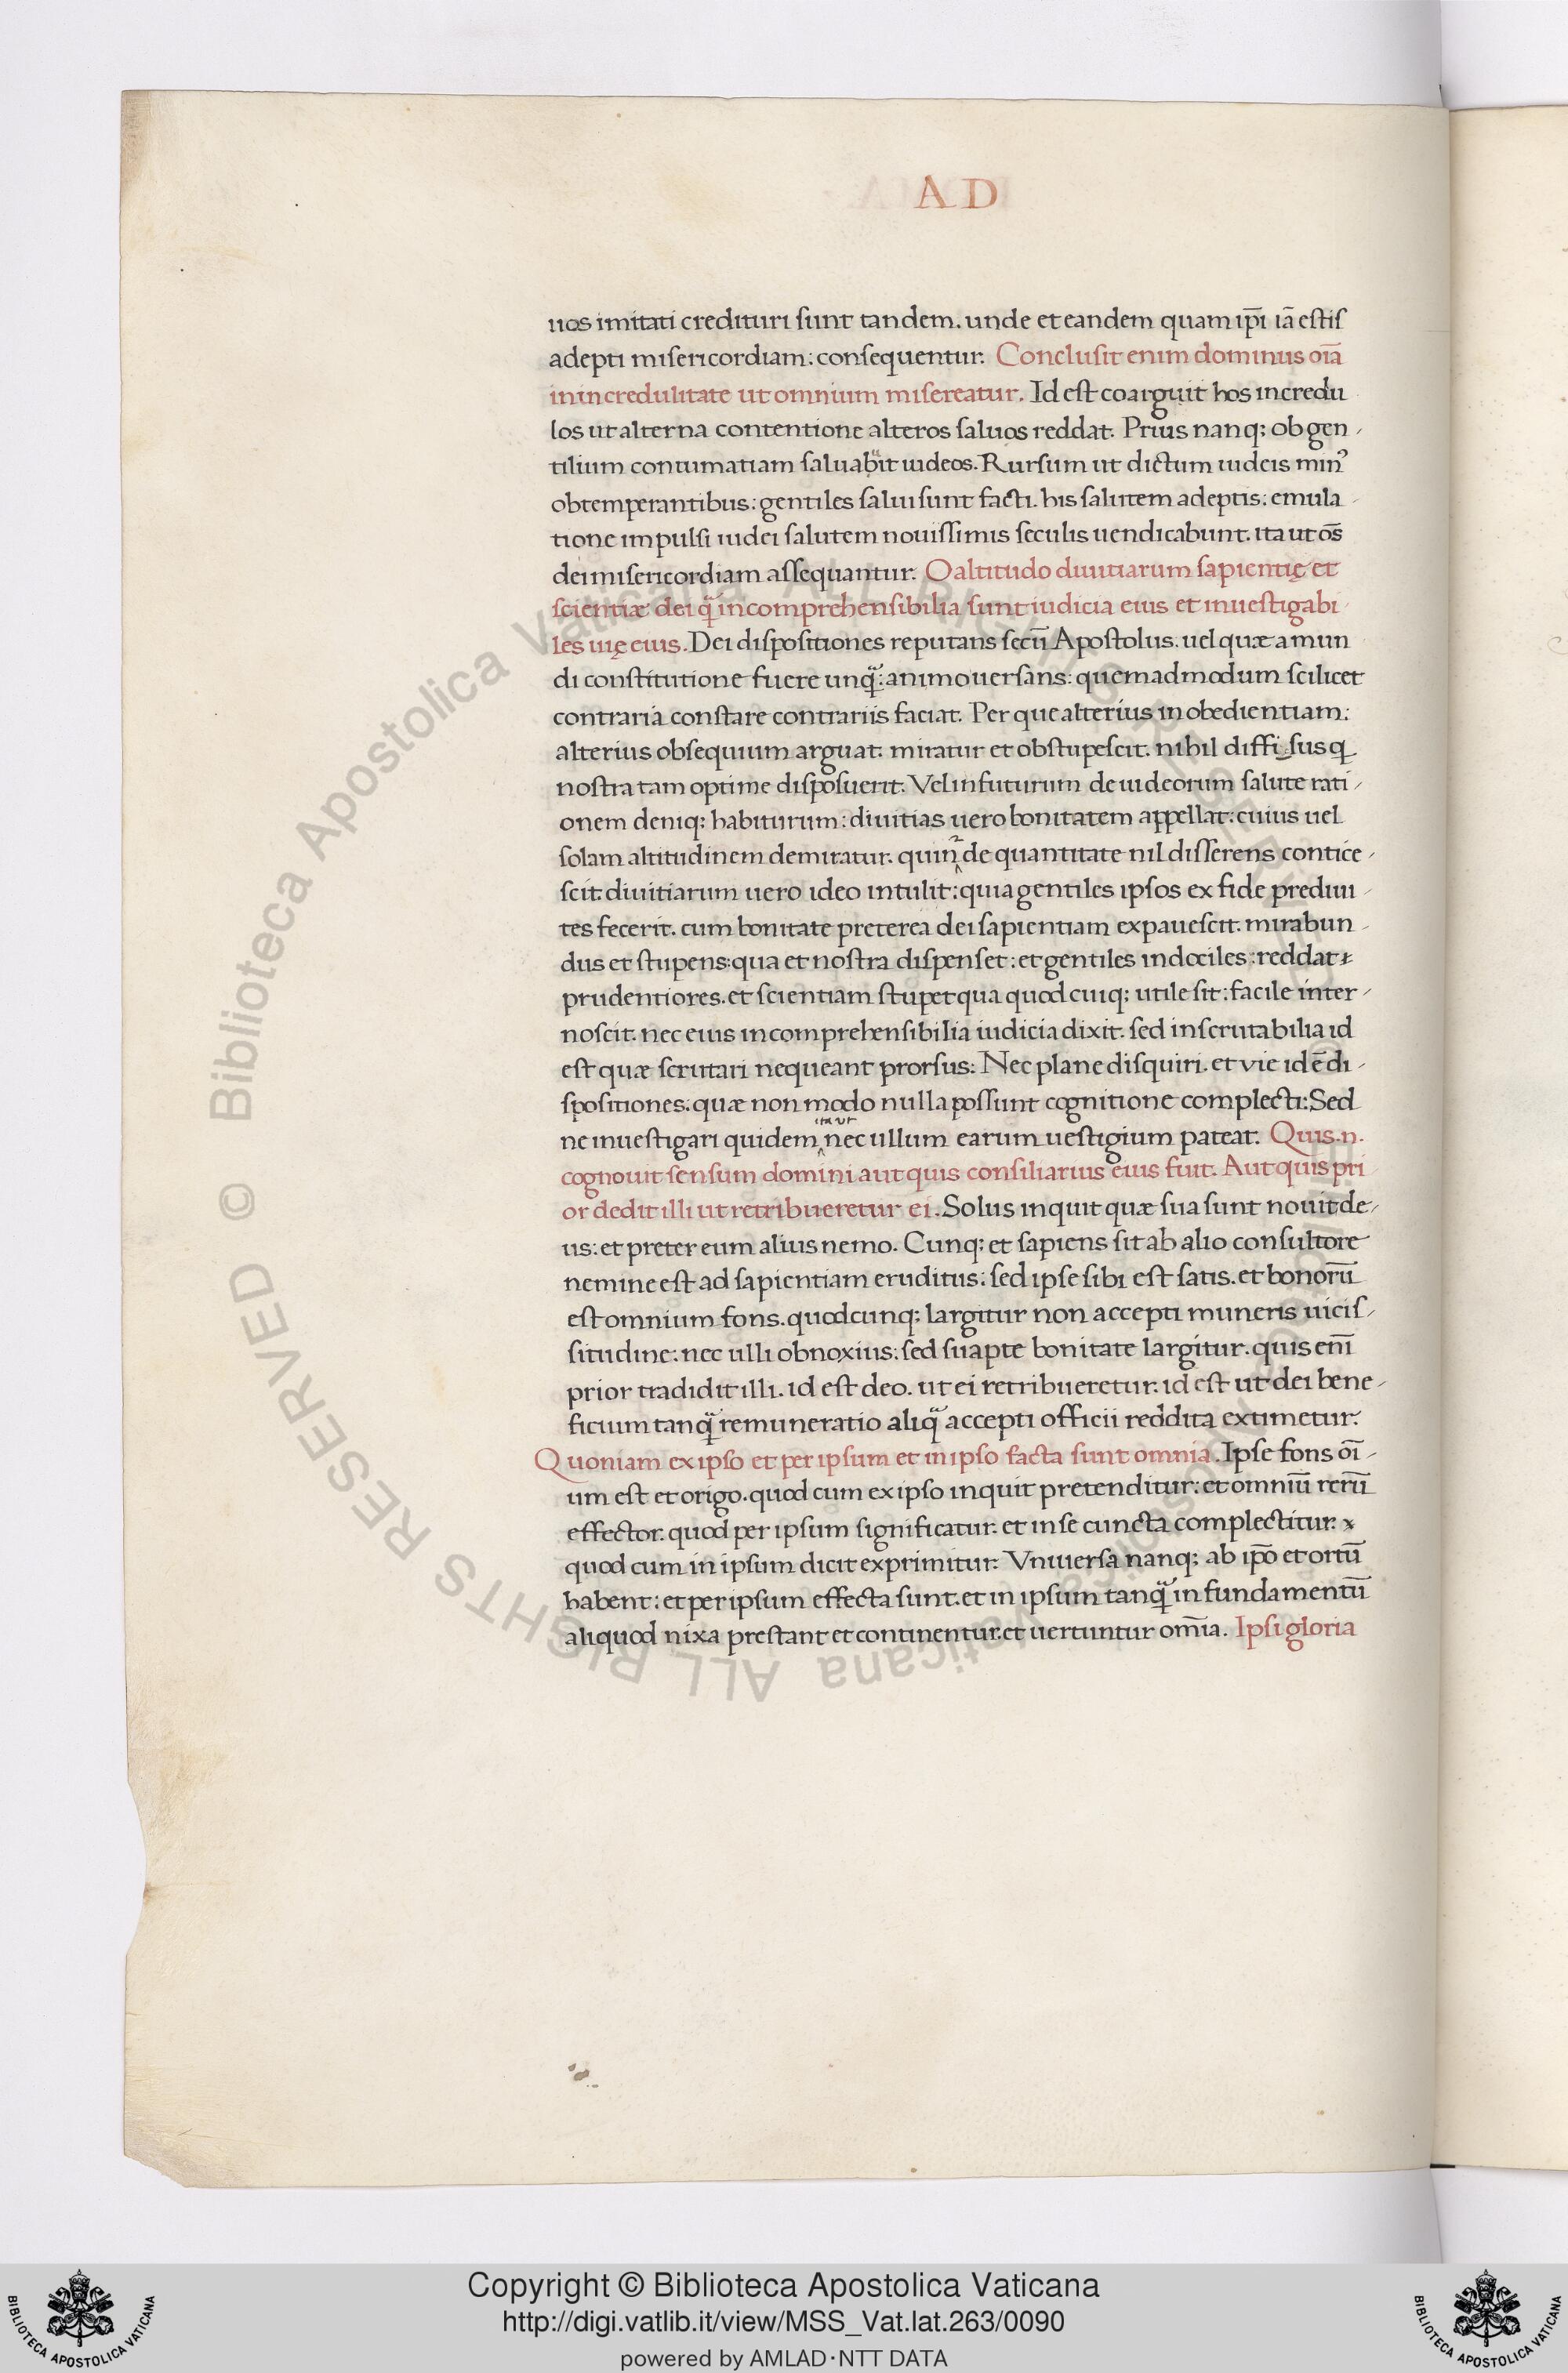 A D
uos imitati credituri sunt tandem. unde et eandem quam ip̄i iā estis
adepti misericordiam: consequentur. Conclusit enim dominus oīa
in incredulitate ut omnium misereatur. Id est coarguit hos incredu
los ut alterna contentione alteros saluos reddat. Prius nanq; ob gen-
tilium contumatiam saluabit iudeos. Rursum ut dictum iudeis minꝰ
obtemperantibus: gentiles salui sunt facti. his salutem adeptis: emula-
tione impulsi iudei salutem nouissimis seculis uendicabunt. ita ut oēs
dei misericordiam assequantur. O altitudo diuitiarum sapientię et
scientiæ dei q̃ incomprehensibilia sunt iudicia eius et inuestigabi-
les uię eius. Dei dispositiones reputans secū Apostolus. uel quæ a mun
di constitutione fuere unq̃: animo uersans: quemadmodum scilicet
contraria constare contrariis faciat. Per que alterius inobedientiam:
alterius obsequium arguat. miratur et obstupescit. nihil diffisus q
nostra tam optime disposuerit. Vel in futurum de iudeorum salute rati-
onem deniq; habiturum: diuitias uero bonitatem appellat: cuius uel
solam altitudinem demiratur. quin de quantitate nil disserens contice-
scit. diuitiarum uero ideo intulit: quia gentiles ipsos ex fide prediui-
tes fecerit. cum bonitate preterea dei sapientiam expauescit. mirabun-
dus et stupens: qua et nostra dispenset: et gentiles indociles: reddat
prudentiores. et scientiam stupet qua quod cuiq; utile sit: facile inter-
noscit. nec eius incomprehensibilia iudicia dixit. sed inscrutabilia id
est quæ scrutari nequeant prorsus: Nec plane disquiri. et vie id ē di-
spositiones. quæ non modo nulla possunt cognitione complecti: Sed
ita ut
ne inuestigari quidem nec ullum earum uestigium pateat. Quis .n.
cognouit sensum domini aut quis consiliarius eius fuit. Aut quis pri
or dedit illi ut retribueretur ei. Solus inquit quæ sua sunt nouit de-
us: et preter eum alius nemo. Cunq; et sapiens sit ab alio consultore
nemine est ad sapientiam eruditus: sed ipse sibi est satis. et bonorū
est omnium fons. quodcunq; largitur non accepti muneris uicis-
situdine: nec ulli obnoxius: sed suapte bonitate largitur. quis enī
prior tradidit illi. id est deo. ut ei retribueretur. id est ut dei bene-
ficium tanq̃ remuneratio aliq̃ accepti officii reddita extimetur.
Quoniam ex ipso et per ipsum et in ipso facta sunt omnia. Ipse fons oī-
um est et origo. quod cum ex ipso inquit pretenditur: et omniū rerū
effector. quod per ipsum significatur. et in se cuncta complectitur.
quod cum in ipsum dicit exprimitur. Vniuersa nanq; ab ip̄o et ortū
habent: et per ipsum effecta sunt. et in ipsum tanq̃ in fundamentū
aliquod nixa prestant et continentur. et uertuntur om̄ia. Ipsi gloria
© Biblioteca Apostolica Vaticana ALL RIGHTS RESERVED
Copyright © Biblioteca Apostolica Vaticana
http://digi.vatlib.it/view/MSS_Vat.lat.263/0090
powered by AMLAD·NTT DATA
BIBLIOTECA APOSTOLICA VATICANA
BIBLIOTECA APOSTOLICA VATICANA